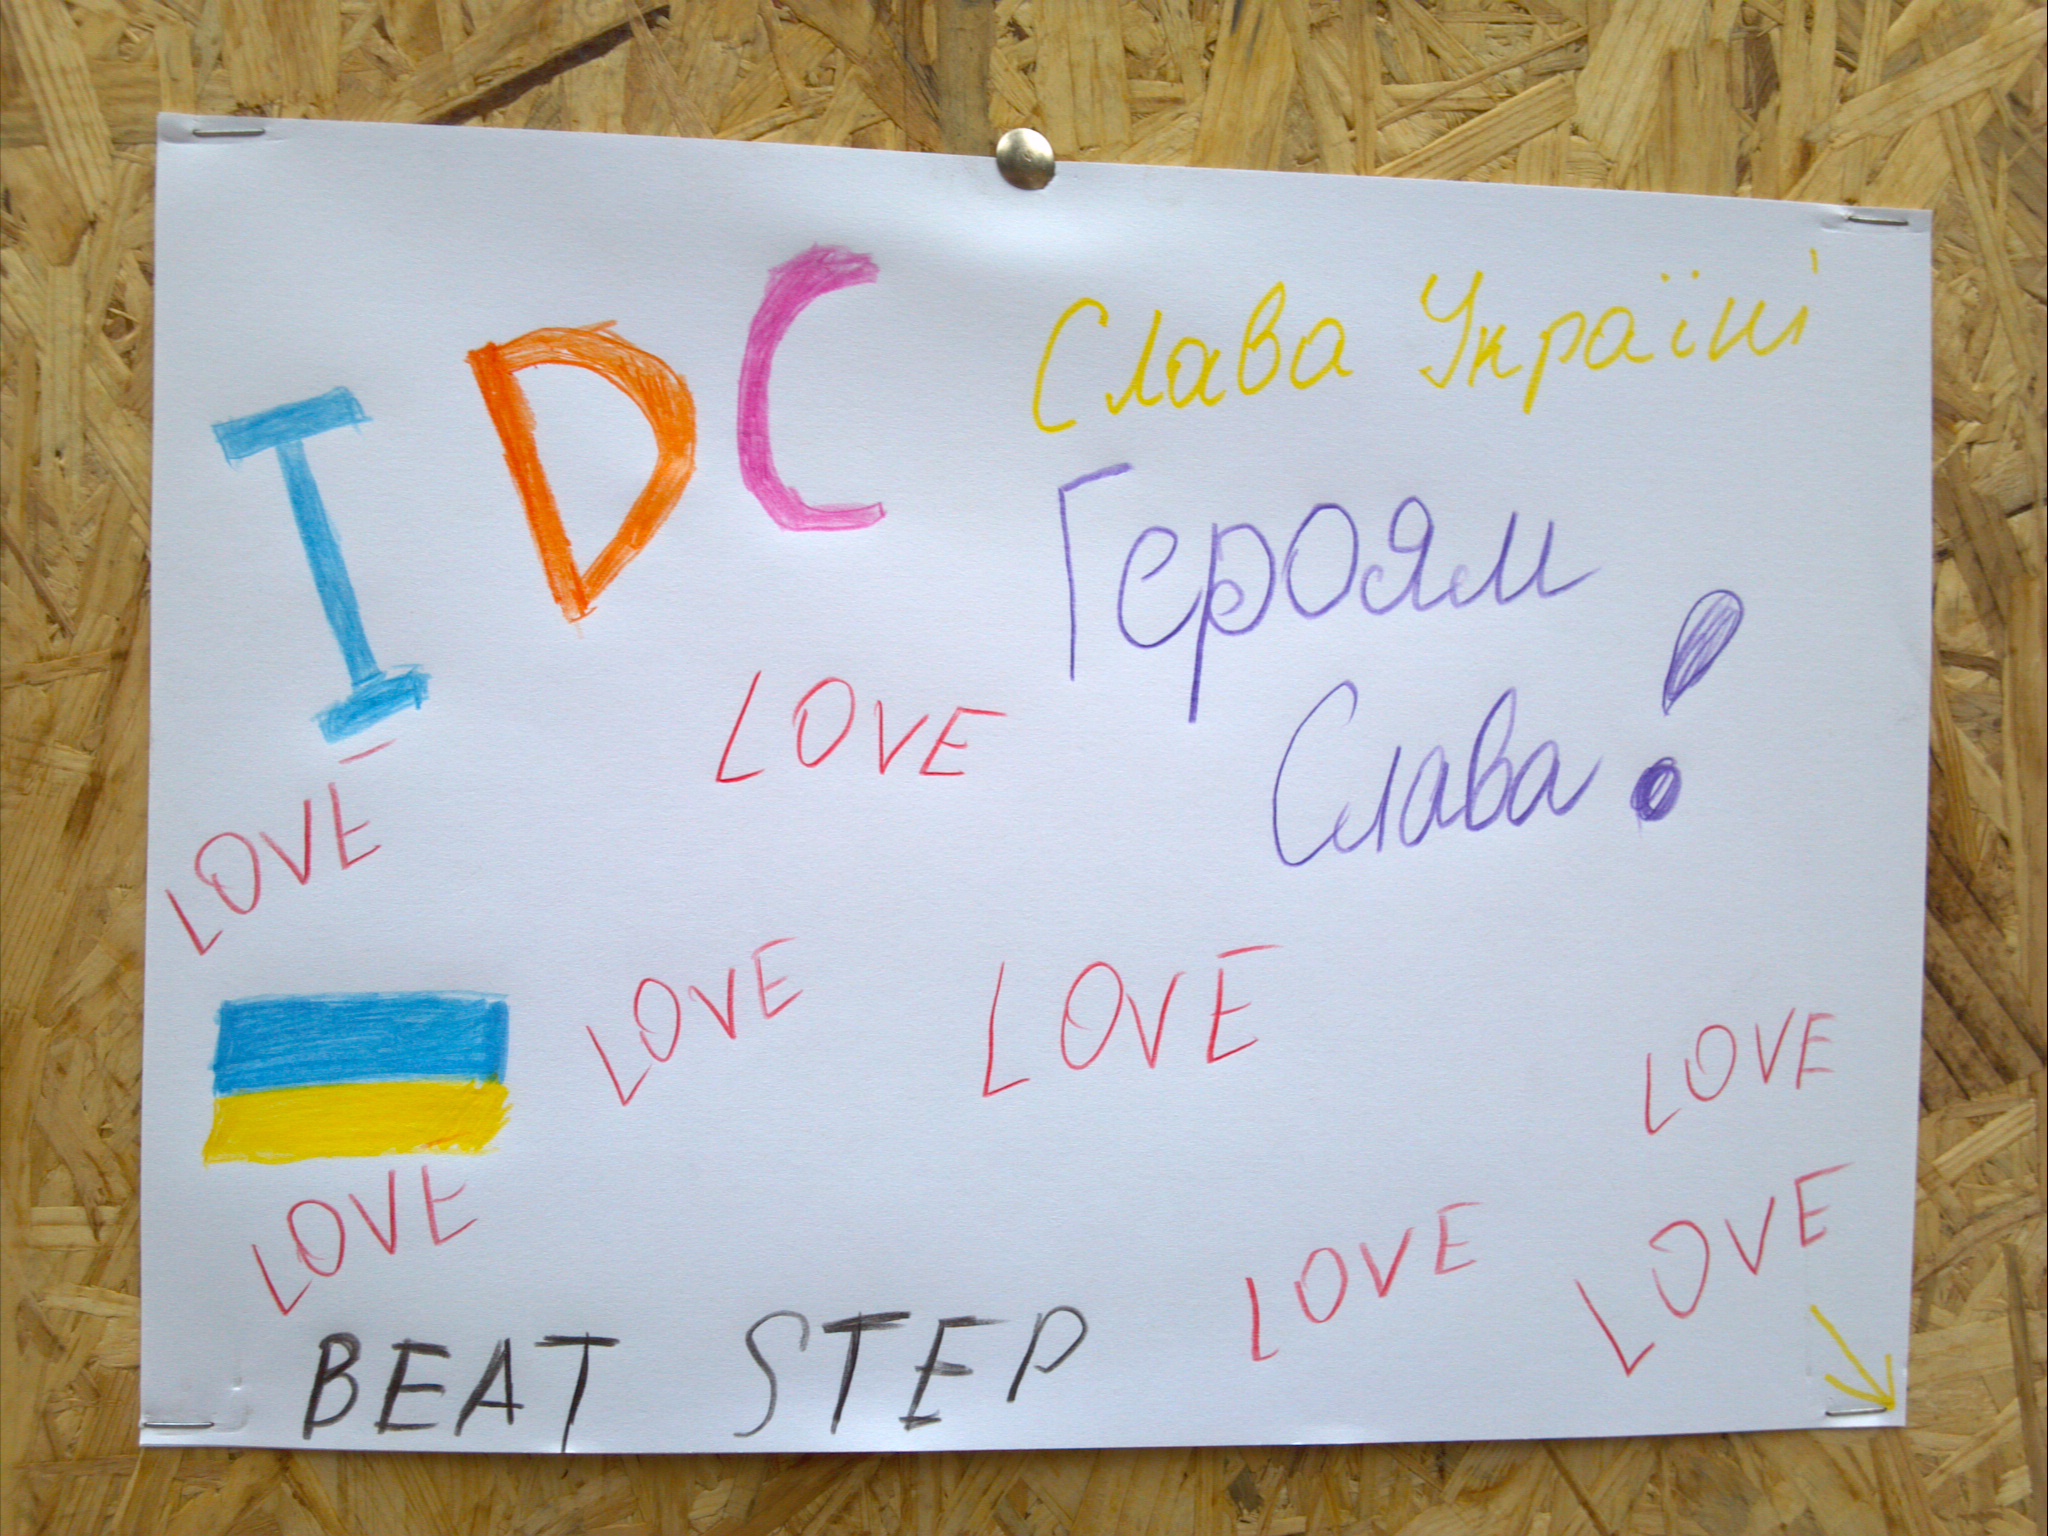 IDC
Слава Україні
Героям
Слава!
LOVE
LOVE
LOVE
LOVE
LOVE
LOVE
LOVE
LOVE
BEAT STEP